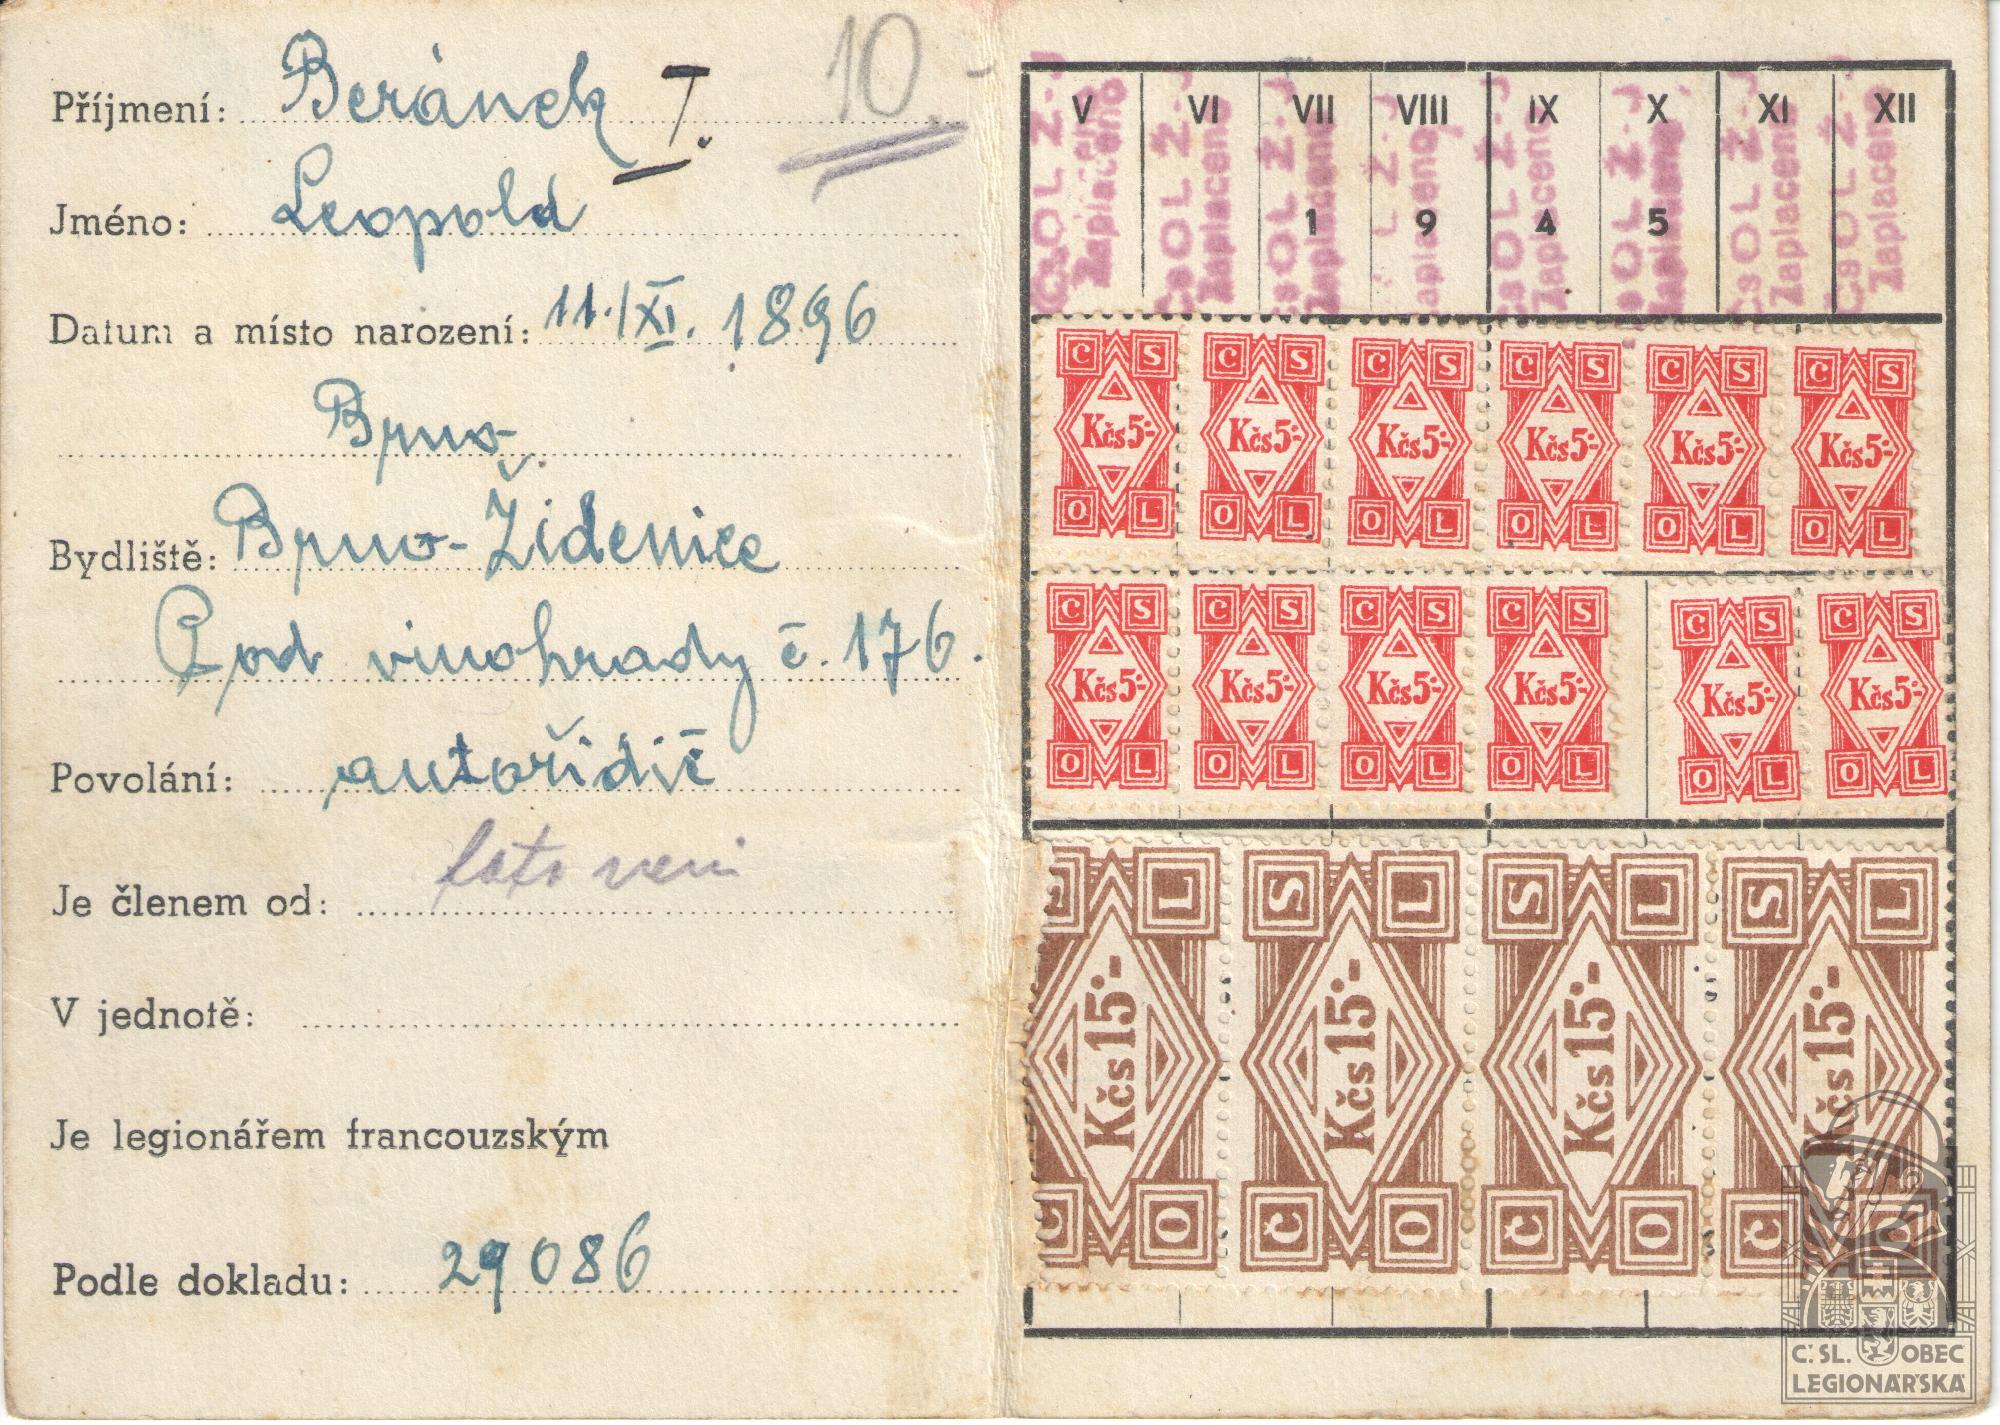 Příjmení: Beránek I. 10.-
Jméno: Leopold
Datum a místo narození: 11./XI. 1896
Brno
Bydliště: Brno-Židenice
Pod vinohrady č. 176.
Povolání: autořidič
Je členem od: foto není
V jednotě:
Je legionářem francouzským
Podle dokladu: 29086
V VI VII VIII IX X XI XII
1 9 4 5
ČsOL Ž-J Zaplaceno ČsOL Ž-J Zaplaceno ČsOL Ž-J Zaplaceno ČsOL Ž-J Zaplaceno ČsOL Ž-J Zaplaceno ČsOL Ž-J Zaplaceno ČsOL Ž-J Zaplaceno ČsOL Ž-J Zaplaceno
Č S Č S Č S Č S Č S Č S
Kčs 5·- Kčs 5·- Kčs 5·- Kčs 5·- Kčs 5·- Kčs 5·-
O L O L O L O L O L O L
Č S Č S Č S Č S Č S Č S
Kčs 5·- Kčs 5·- Kčs 5·- Kčs 5·- Kčs 5·- Kčs 5·-
O L O L O L O L O L O L
S L S L S L S L
Kčs 15·- Kčs 15·- Kčs 15·- Kčs 15·-
Č O Č O Č O Č O
Č. SL. OBEC
LEGIONÁŘSKÁ